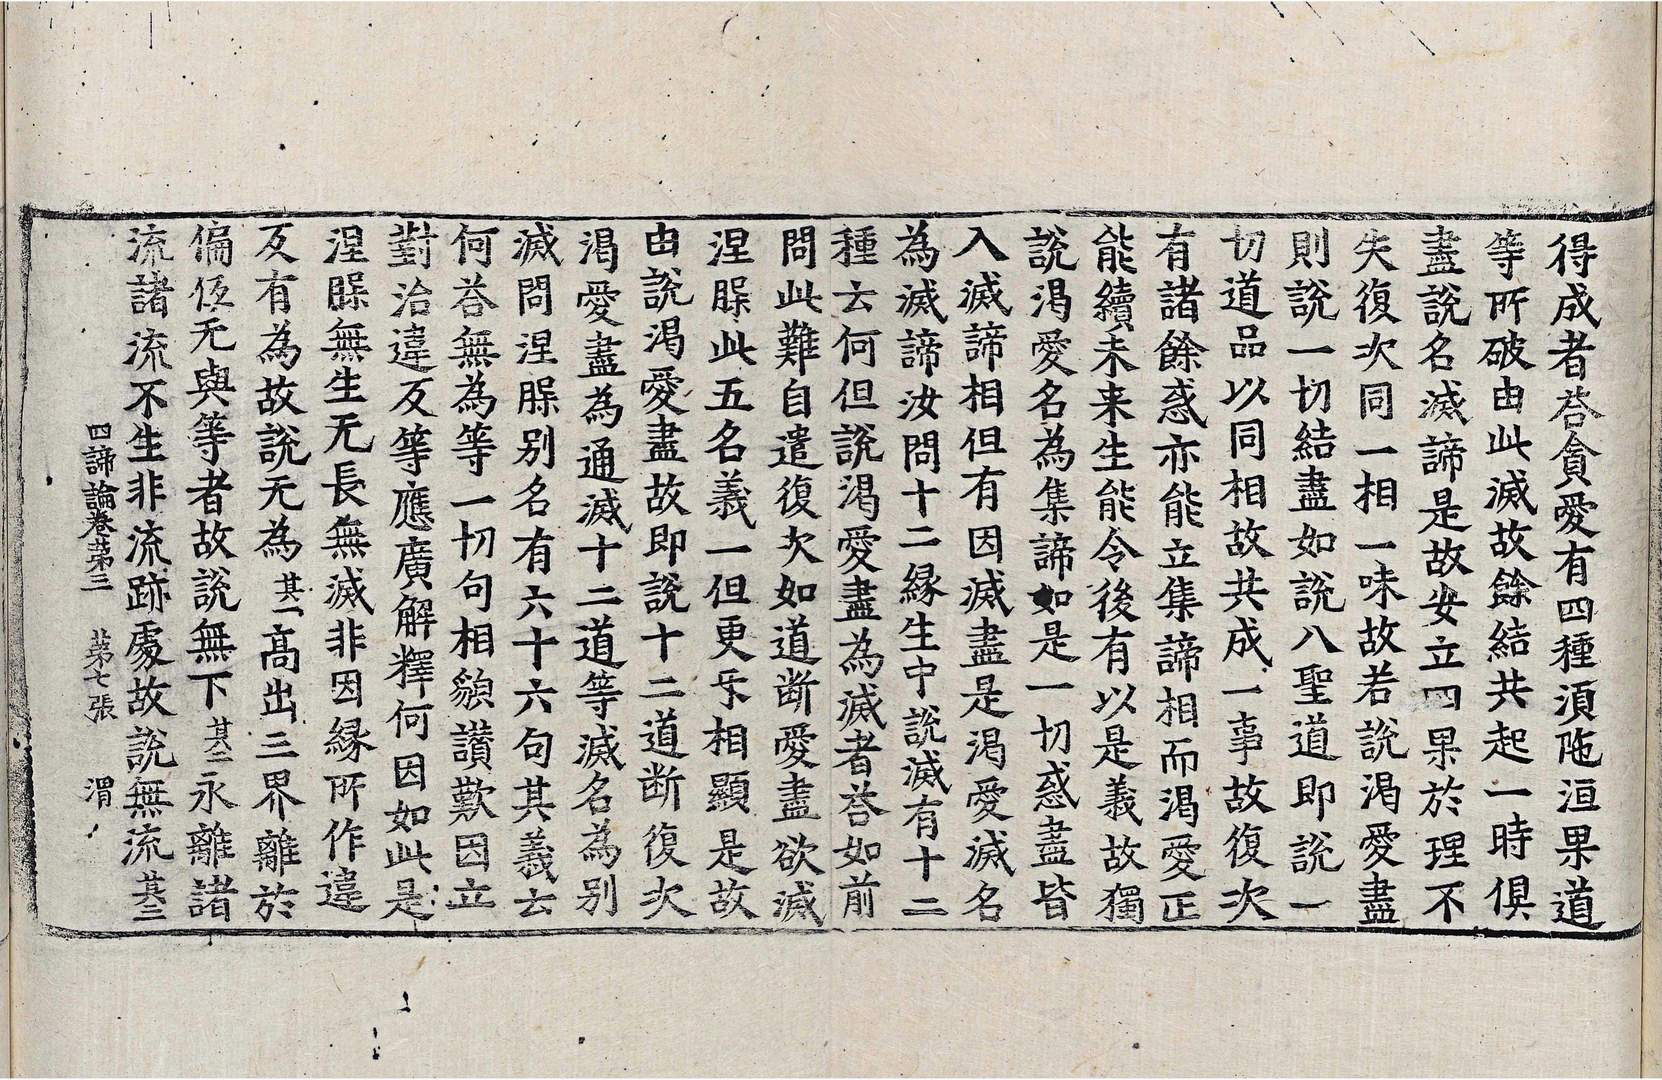 得成者荅貪愛有四種湏陁洹果道
等所破由此滅故餘結共起一時俱
盡說名滅諦是故安立四果於理不
失復次同一相一味故若說渴愛盡
則說一切結盡如說八聖道即說一
切道品以同相故共成一事故復次
有諸餘惑亦能立集諦相而渴愛正
能續未来生能令後有以是義故獨
說渴愛名為集諦如是一切惑盡皆
入滅諦相但有因滅盡是渴愛滅名
為滅諦汝問十二縁生中說滅有十二
種云何但說渴愛盡為滅者荅如前
問此難自遣復次如道断愛盡欲滅
涅槃此五名義一但更㸦相顯是故
由說渴愛盡故即說十二道断復次
渴愛盡為通滅十二道等滅名為別
滅問涅槃別名有六十六句其義云
何荅無為等一切句相貌讃歎因立
對治違反等應廣解釋何因如此是
涅槃無生无長無滅非因縁所作違
反有為故說无為其一高出三界離於
偏伍无與等者故說無下其二永離諸
流諸流不生非流跡處故說無流其三
四諦論卷苐三 苐七張 渭